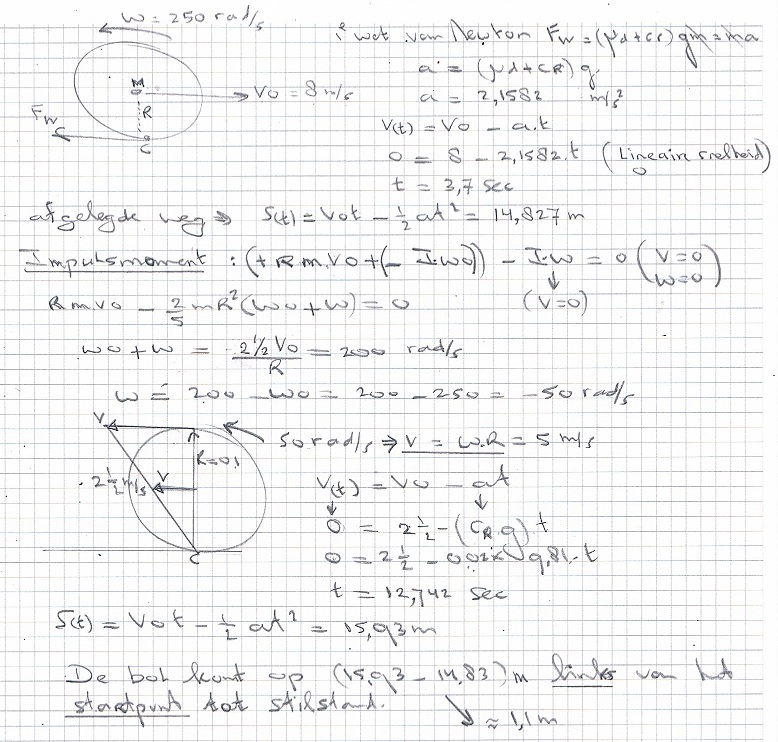 ω = 250 rad/s
1e wet van Newton Fw = (μd + cr) gm = ma
M
Vo = 8 m/s
a = (μd + CR) g
R
a = 2,1582 m/s²
Fw
C
V(t) = Vo - a.t
0 = 8 - 2,1582.t (Lineaire snelheid)
0
t = 3,7 sec
afgelegde weg ⇒ S(t) = Vot - ½ at² = 14,827 m
Impulsmoment : (+ R m.Vo + (- I.ωo)) - I.ω = 0 (V=0
ω=0)
(V=0)
R m.vo - 2/5 mR² (ωo + ω) = 0
ωo + ω = 2½ Vo / R = 200 rad/s
ω = 200 - ωo = 200 - 250 = -50 rad/s
V
50 rad/s ⇒ V = ω.R = 5 m/s
R=0,1
2½ m/s
V
V(t) = Vo - at
0 = 2½ - (CR.g) t
0 = 2½ - 0,02 x 9,81.t
C
t = 12,742 sec
S(t) = Vot - ½ at² = 15,93 m
De bol komt op (15,93 - 14,83) m links van het
startpunt tot stilstand.
≈ 1,1 m